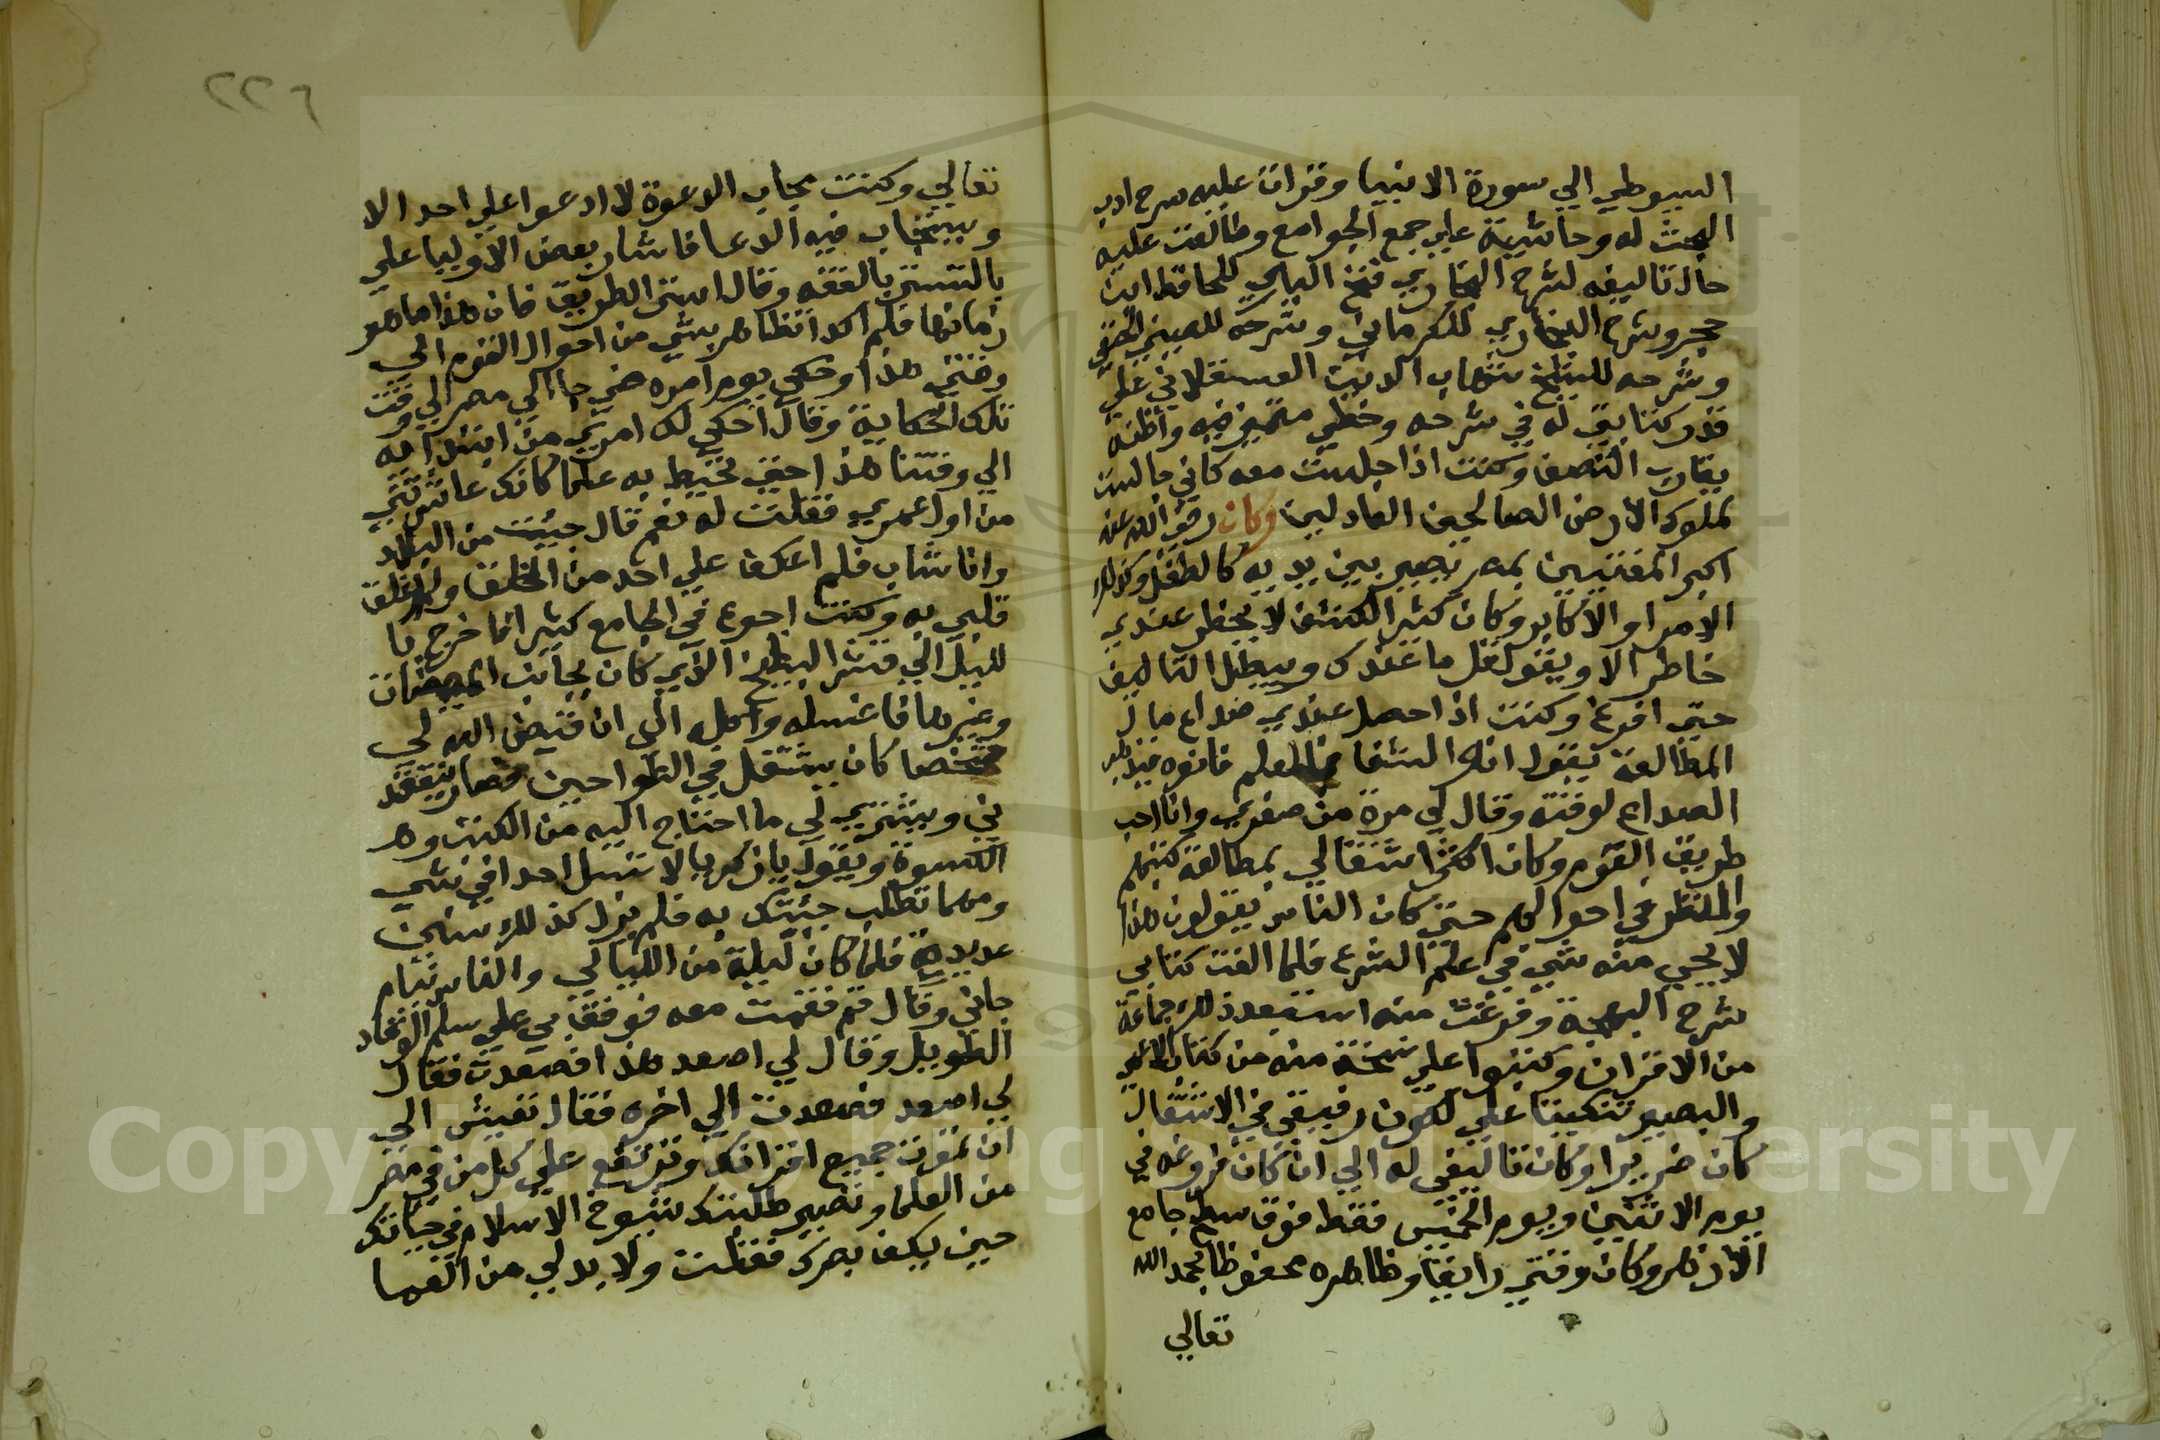 السيوطي الي سورة الانبيا وقرات عليه شرح اداب
البحث له وحاشية علي جمع الجوامع وطالعت عليه
حال تاليفه لشرح البخاري فتح الباري للحافظ ابن
حجر وشرح البخاري للكرماني وشرحه للعيني الحنفي
وشرحه للشيخ شهاب الدين العسقلاني علي
قدر كتابتي له في شرحه وخطي متميز فيه واظنه
يقارب النصف وكنت اذا جلست معه كاني جالست
ملوك الارض الصالحين العادلين وكان رضي الله عنه
اكبر المفتيين بمصر يصير بين يديه كالطفل وكذلك
الامرا والاكابر وكان كثير الكشف لا يخطر عندي
خاطر الا ويقول قل ما عندك ويبطل التاليف
حتي افرغ وكنت اذا حصل عندي صداع حال
المطالعة يقول انو الشفا بالعلم فانوه فيذهب
الصداع لوقته وقال لي مرة من صغري وانا احب
طريق القوم وكان اكثر اشتغالي بمطالعة كتبهم
والنظر في احوالهم حتي كان الناس يقولون هذا
لا يجي منه شي في علم الشرع فلما الفت كتابي
شرح البهجة وفرغت منه استبعد ذلك جماعة
من الاقران وكتبوا علي نسخة منه من كتاب الاعمي
والبصير تنكيتا علي لكون رفيقي في الاشتغال
كان ضريرا وكان تاليفي له الي ان كان فروغه في
يوم الاثنين ويوم الخميس فقط فوق سطح جامع
الازهر وكان وقتي رايقا وظاهره محفوظا بحمد الله
تعالي
٢٢٦
تعالي وكنت مجاب الدعوة لا ادعوا علي احد الا
ويستجاب فيه الدعا فاشار بعض الاوليا علي
بالتستر بالفقه وقال استر الطريق فان هذا ما هو
زمانها فلم اكد اتظاهر بشي من احوال القوم الي
وقتي هذا وحكي يوم امره حين جا الي مصر الي وقت
تلك الحكاية وقال احكي لك امري من ابتدايه
الي وقتنا هذا حتي تحيط به علما كانك عاشرتني
من اول عمري فقلت له نعم قال جيت من البلاد
وانا شاب فلم اعكف علي احد من الخلق ولم اعلق
قلبي به وكنت اجوع في الجامع كثيرا فاخرج با
لليل الي قشر البطيخ الذي كان بجانب الميضات
وغيرها فاغسله واكله الي ان قيض الله لي
شخصا كان يشتغل في الطواحين فصار يتفقد
ني ويشتري لي ما احتاج اليه من الكتب وهـ
الكسوة ويقول يا زكريا لا تسل احدا في شي
ومهما تطلب جيتك به فلم يزل كذلك سنين
عديدة فلما كان ليلة من الليالي والناس نيام
جاني وقال قم فقمت معه فوقف بي علي سلم الوقاد
الطويل وقال لي اصعد هذا فصعدت فقال
لي اصعد فصعدت الي اخره فقال تعيش الي
ان تموت جميع اقرانك وترتفع علي كل من في مصر
من العلما وتصير طلبتك شيوخ الاسلام في حياتك
حين يكف بصرك فقلت ولا بد لي من العما